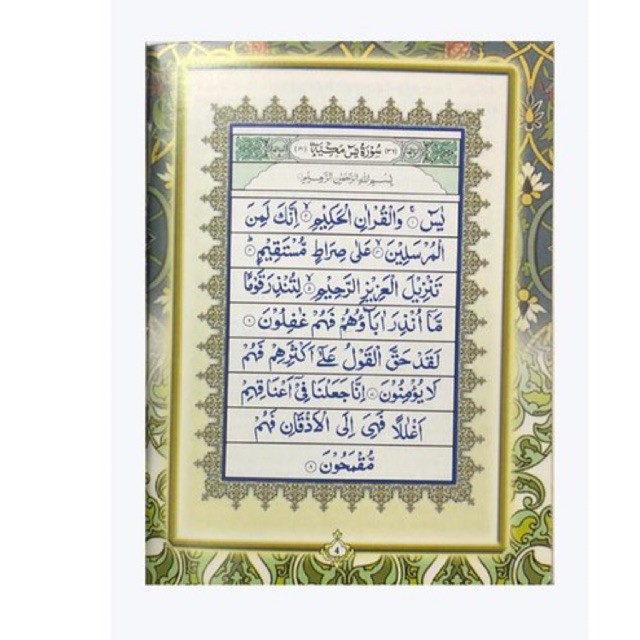 سُوْرَةُ يٰسٓ مَكِّيَّةٌ
بِسْمِ اللّٰهِ الرَّحْمٰنِ الرَّحِيْمِ
يٰسٓ ۚ وَالْقُرْاٰنِ الْحَكِيْمِ ۙ اِنَّكَ لَمِنَ
الْمُرْسَلِيْنَ ۙ عَلٰى صِرَاطٍ مُّسْتَقِيْمٍ ۗ
تَنْزِيْلَ الْعَزِيْزِ الرَّحِيْمِ ۙ لِتُنْذِرَ قَوْمًا
مَّآ اُنْذِرَ اٰبَآؤُهُمْ فَهُمْ غٰفِلُوْنَ
لَقَدْ حَقَّ الْقَوْلُ عَلٰٓى اَكْثَرِهِمْ فَهُمْ
لَا يُؤْمِنُوْنَ اِنَّا جَعَلْنَا فِيْٓ اَعْنَاقِهِمْ
اَغْلٰلًا فَهِيَ اِلَى الْاَذْقَانِ فَهُمْ
مُّقْمَحُوْنَ
4